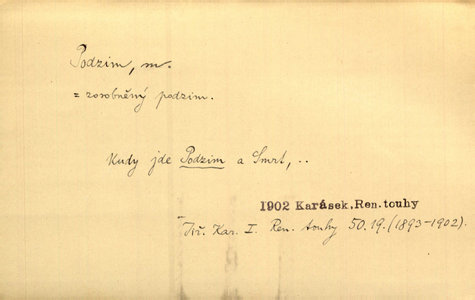 Podzim, m.
= zosobněný podzim.
Kudy jde Podzim a Smrt, ..
1902 Karásek, Ren. touhy
Tvř. Kar. I. Ren. touhy 50.19. (1893-1902).